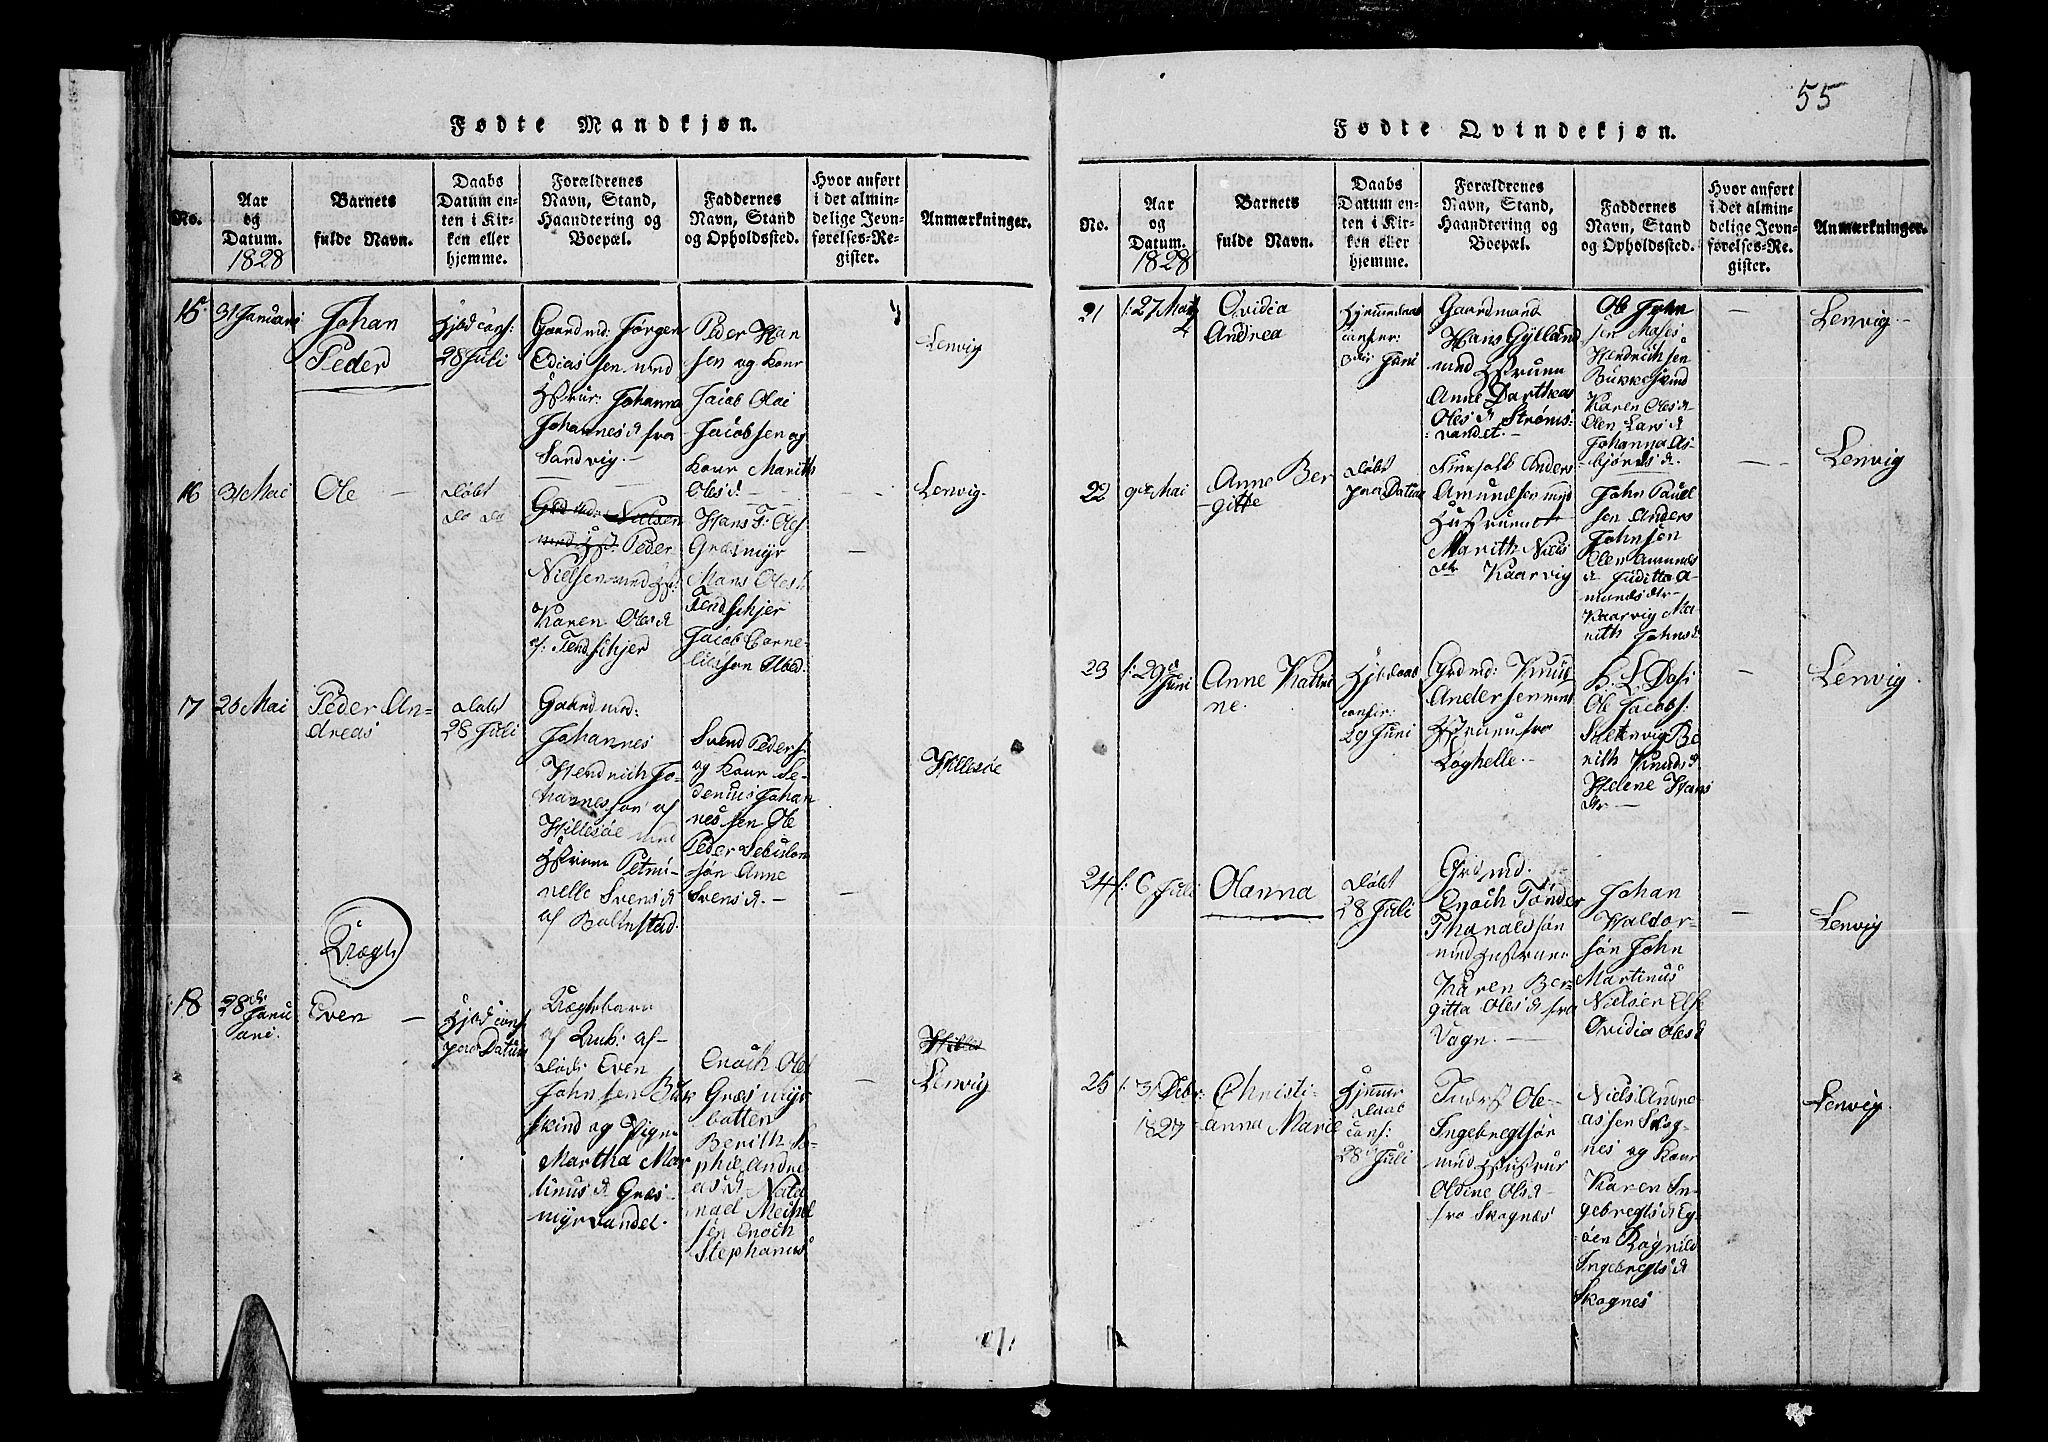 55
Fødte Mandkjøn.
No.
Aar
og
Datum.
1828
Barnets
fulde Navn.
Daabs
Datum en-
ten i Kir-
ken eller
hjemme.
Forældrenes
Navn, Stand,
Haandtering og
Boepæl.
Faddernes
Navn, Stand
og Opholdssted.
Hvor anført
i det almin-
delige Jevn-
førelses-Re-
gister.
Anmærkninger.
15
31 Januari
Johan
Peder
Hjed conf:
28 Juli
Gaardmd: Jørgen
Ediassen med
Hstrue: Johanna
Johannesd fra
Sandvig.—
Peder Han
sen og Kone
Jacob Olai
Jacobsen og
Kone Marith
Olesd.
Lenvig
16
31 Mai
Ole
Døbt
do do
Grdmd: Nielsen
med H: Peder
Nielsen med H:
Karen Olesd
af: Tendschjer
Hans T: Oles
Græsmyr
Hans Oles:
Tendschjer
Jacob Corne-
liussen
Lenvig.
17
26 Mai
Peder An-
dreas
Døbt
28 Juli
Gaardmd:
Johannes
Hendrich Jo-
hannessøn af
Hillesøe med
Hstrue Petrni-
nelle Svensd
af Bolmstad.
Svend Peders:
og Kone Se-
denius Johan
nessen Ole
Peder
søn Anne
Svensd.—
Hillesøe
18
28de
Janu
ari.
Even
Hjed conf
para Datum
Lægebarn
af Unk: af-
døde Even
Johnsen Buk
skind og Pigen
Martha Mar
tinusd Græs-
myrvandet.
Enoch Ole
Græsmyr
batten
Berith So-
phie Andre
asd Nata
nael Mechel
sen Enoch
Stephanus
Hilles
Lenvig
Fødte Qvindekjøn.
No.
Aar
og
Datum.
1828
Barnets
fulde Navn.
Daabs
Datum en-
ten i Kir-
ken eller
hjemme.
Forældrenes
Navn, Stand,
Haandtering og
Boepæl.
Faddernes
Navn, Stand
og Opholdssted.
Hvor anført
i det almin-
delige Jevn-
førelses-Re-
gister.
Anmærkninger.
21
f: 27 Mai
Ovidia
Andrea
Juni
Gaardmand
Hans Gylland
med Hstruen
Anne Darthea
Olesd Strøms-
vandet.—
Ole John
sen Moses
Hendrichsen
Bukkeskind
Karen Olesd
Olen Larsd
Johanna As-
bjørnsd.
Lenvig
22
9de Mai
Anne Ber
gitte
Døbt
para Datum
Anders
Amundsen med
Hustruen
Marith Niels
dtr Kaarvig
John Pouel
sen Anders
Johnsen
Olen Amunds
d Juditta A-
mundsdtr
Kaarvig Ma-
rith Johnsd
Lenvig
23
f: 29de
Juni
Anne Kathri
ne.
Hjedaab
confir:
29 Juni
Grdmd: Knud
Andersen med
Hstruen fra
Loghelle.
H. L. Dasi
Ole Jacobs:
Be
rith Knudsd
Helene Hans
dtr
Lenvig
24
f: 6 Juli
Olanna
Døbt
28 Juli
Grdmd.
Enoch Tønder
Thomassøn
med Hustruen
Karen Ber-
gitta Olesd fra
Vagn.
Johan
Haldor-
søn John
Martinus
Nielsen Else
Ovidia Olesd
Lenvig
25
f: 31 Debr:
1827
Christi-
anna Marie
Hjemme
Daab
conf:
28 Juli
Inderst Ole
Ingebregtsøn
med Hustrue
Oldine Olsd
fra Skognes
Niels Andre
assen Skog-
nes og Kone
Karen In-
gebregtsd Eg-
øen Rognild
Ingebregtsd
Skognes
Lenvig